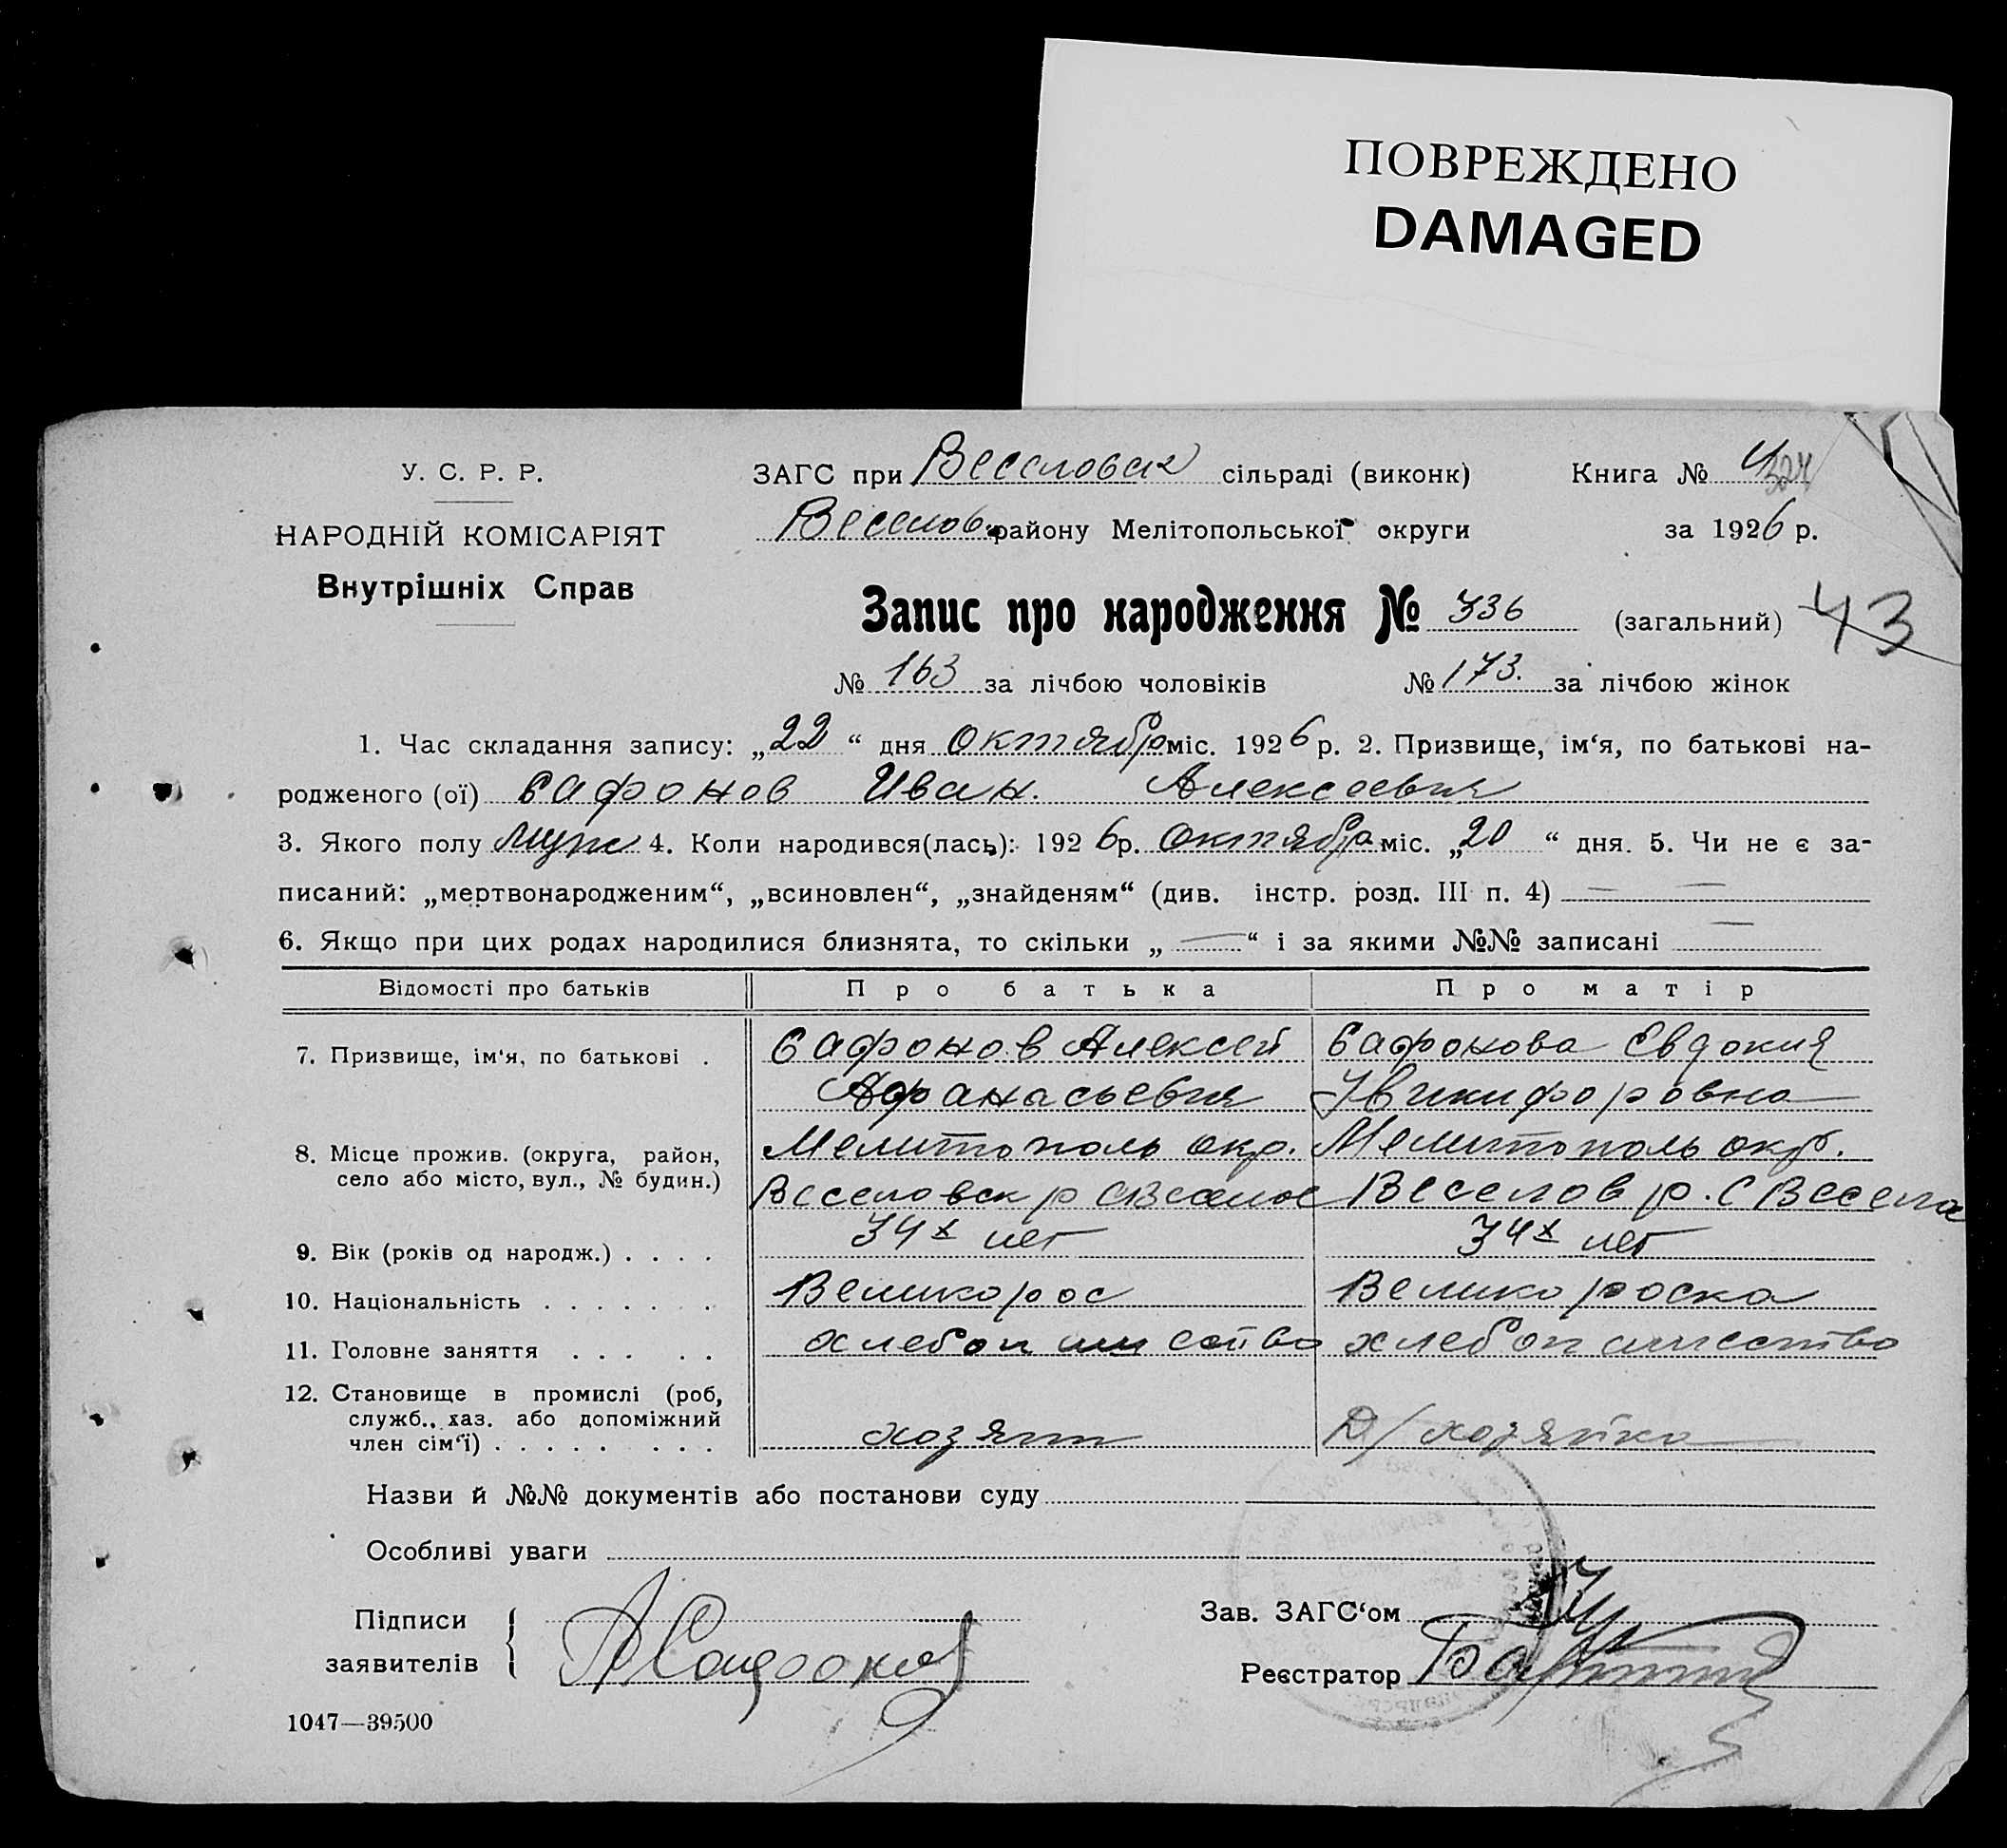 ПОВРЕЖДЕНО
DAMAGED
У. С. Р. Р.
НАРОДНІЙ КОМІСАРІЯТ
Внутрішніх Справ
ЗАГС при Веселовск сільраді (виконк)
Книга № 4
324
Веселов району Мелітопольської округи
за 1926 р.
Запис про народження № 336 (загальний)
43
№ 163 за лічбою чоловіків № 173. за лічбою жінок
1. Час складання запису: „22“ дня октября міс. 1926 р. 2. Призвище, ім‘я, по батькові на-
родженого (ої) Сафонов Иван. Алексеевич
3. Якого полу муж 4. Коли народився(лась): 1926р. октября міс. „20“ дня. 5. Чи не є за-
писаний: „мертвонародженим“, „всиновлен“, „знайденям“ (див. інстр. розд. III п. 4) — —
6. Якщо при цих родах народилися близнята, то скільки „—“ і за якими №№ записані —
Відомості про батьків Про батька Про матір
7. Призвище, ім‘я, по батькові . Сафонов Алексей Сафонова Евдокия
Афанасьевич Никифоровна
8. Місце прожив. (округа, район, Мелитополь окр. Мелитополь окр.
село або місто, вул., № будин.) Веселовск р с Веселое Веселов р. с Веселое
9. Вік (років од народж.) . . . . 34х лет 34х лет
10. Національність . . . . . . . Великорос Великороска
11. Головне заняття . . . . . хлебопашество хлебопашество
12. Становище в промислі (роб,
служб., хаз. або допоміжний
член сім‘ї) . . . . . . . . хозяин Д/хозяйка
Назви й №№ документів або постанови суду
Особливі уваги
Підписи
заявителів А Сафонов
Зав. ЗАГС‘ом
Реєстратор
1047—39500